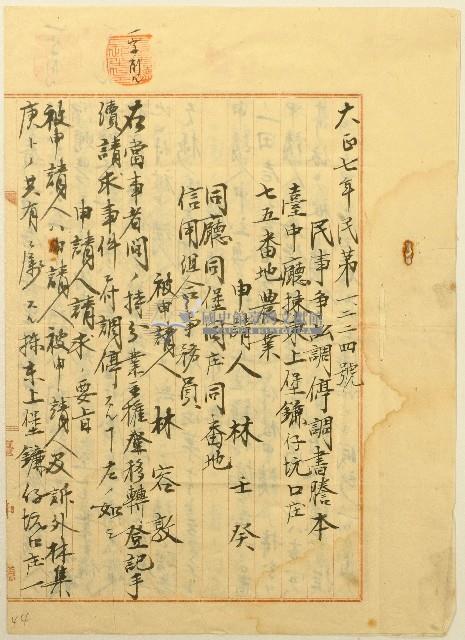 一字削ル
大正七年民第一二二四號
民事爭訟調停調書謄本
臺中廳揀東上堡鐮仔坑口庄
七五番地農業
申請人 林壬癸
同廳同堡同庄同番地
信用組合事務員
被申請人 林容敦
右當事者間ノ持分業主權移轉登記手
續請求事件ニ付調停スル丁左ノ如シ
申請人請求ノ要旨
被申請人ハ申請人被申請人及訴外林集
庚トノ共有ニ係ル揀東上堡鐮仔坑口庄一
44